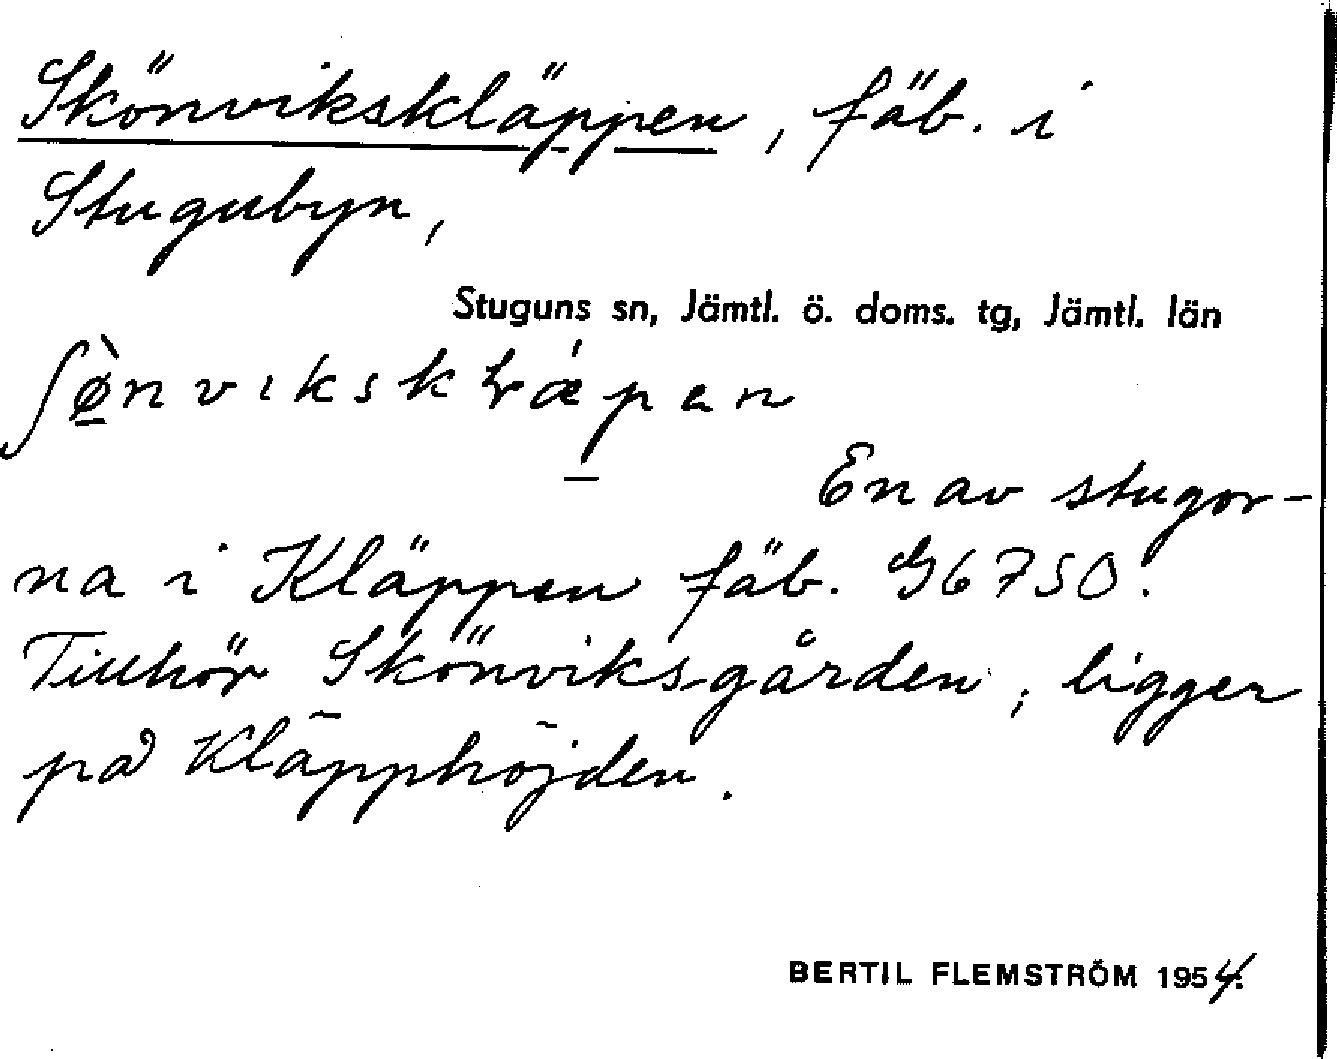 Skönvikskläppen, fäb. i
Stugubyn,
Stuguns sn, Jämtl. ö. doms. tg, Jämtl. län
En av stugor-
na i Kläppen fäb. G6750.
Tillhör Skönviksgården, ligger
på Kläpphöjden.
BERTIL FLEMSTRÖM 1954.